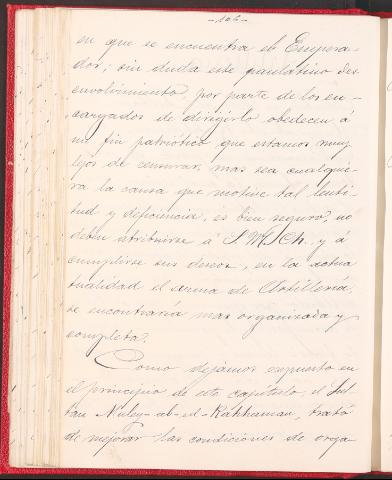 -106-
en que se encuentra el Empera-
dor; sin duda este paulatino des
envolvimiento por parte de los en-
cargados de dirigirlo obedecen á
un fin patriótico que estamos muy
lejos de censurar, mas sea cualquie-
ra la causa que motive tal lenti-
tud y deficiencia, es bien seguro, no
deben atribuirse á S.M.Ch. y á
cumplirse sus deseos, en la actua
tualidad el arma de Artilleria,
se encontraría mas organizada y
completa.
Como dejamos expuesto en
el principio de este capítulo, el Sul-
tan Muley-ab-el-Rahhaman, trató
de mejorar las condiciones de orga-